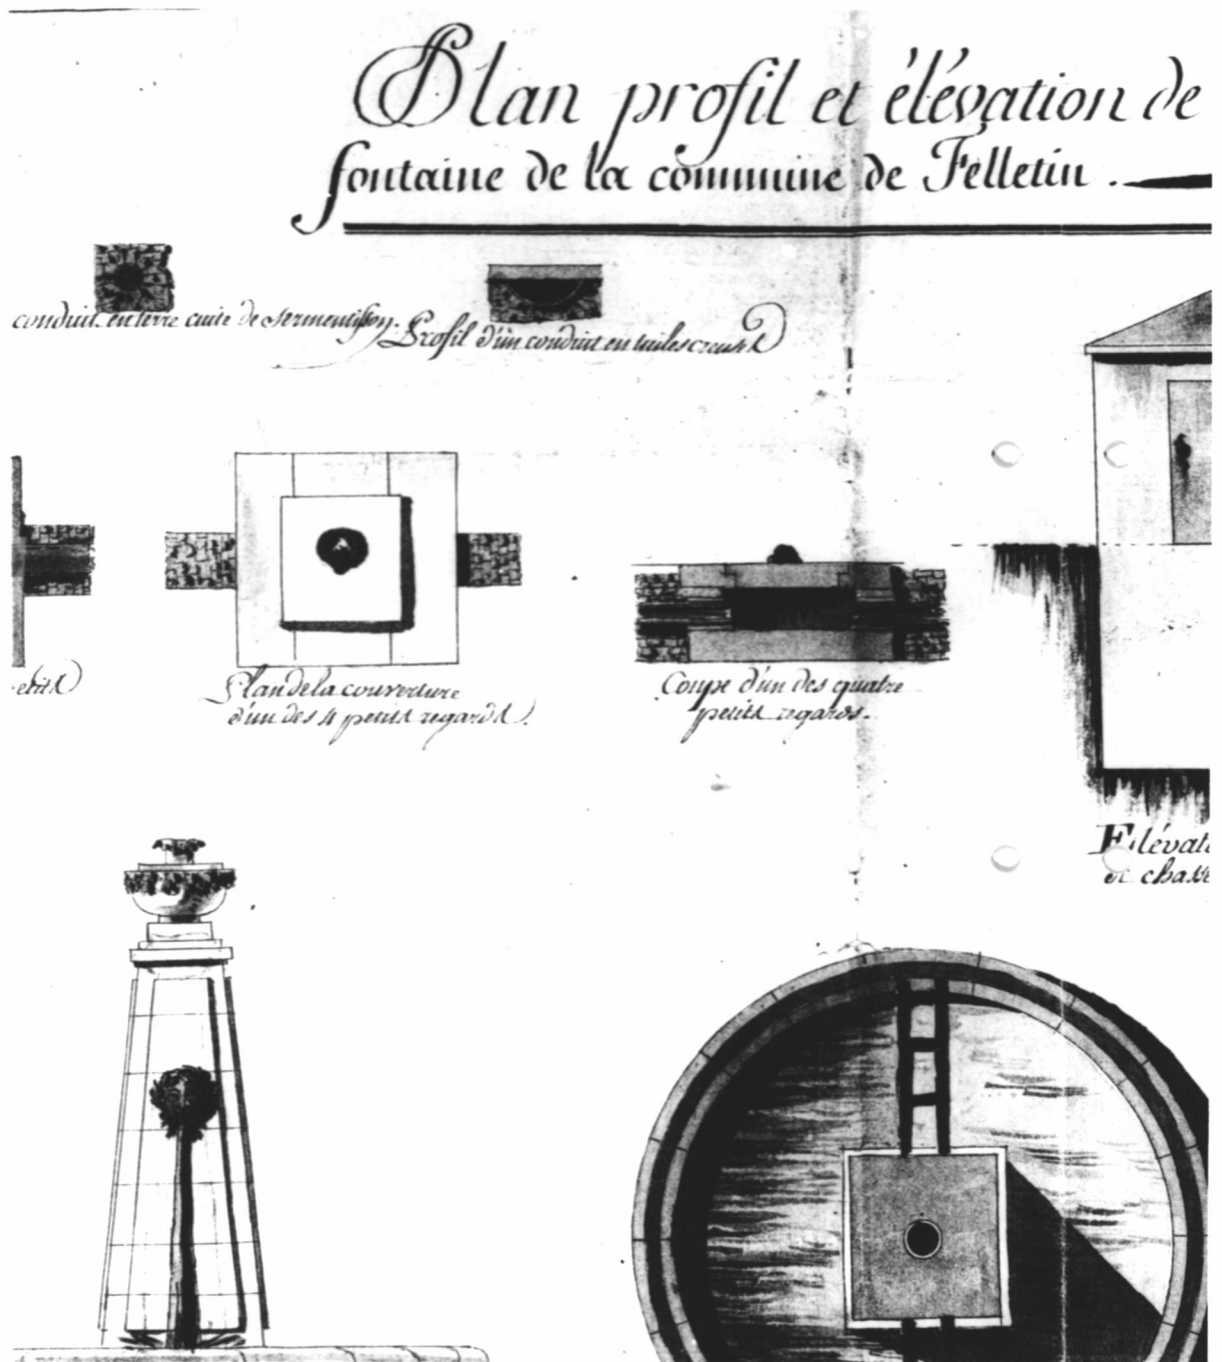 Plan profil et élévation de
fontaine de la commune de Felletin.
conduit en terre cuite de
Profil d'un conduit en tuiles creuses
etits
Plan de la couverture
d'un des 4 petits regards.
Coupe d'un des quatre
petits regards.
Élévat
et chass